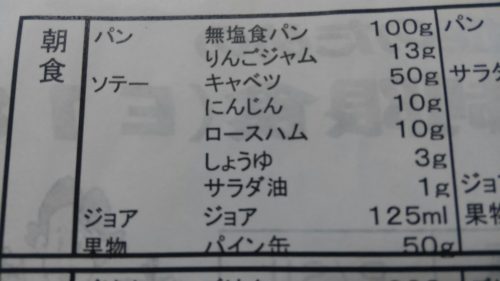 朝食 パン 無塩食パン 100g パン
りんごジャム 13g
ソテー キャベツ 50g サラダ
にんじん 10g
ロースハム 10g
しょうゆ 3g
サラダ油 1g ジョ
ジョア ジョア 125ml 果物
果物 パイン缶 50g